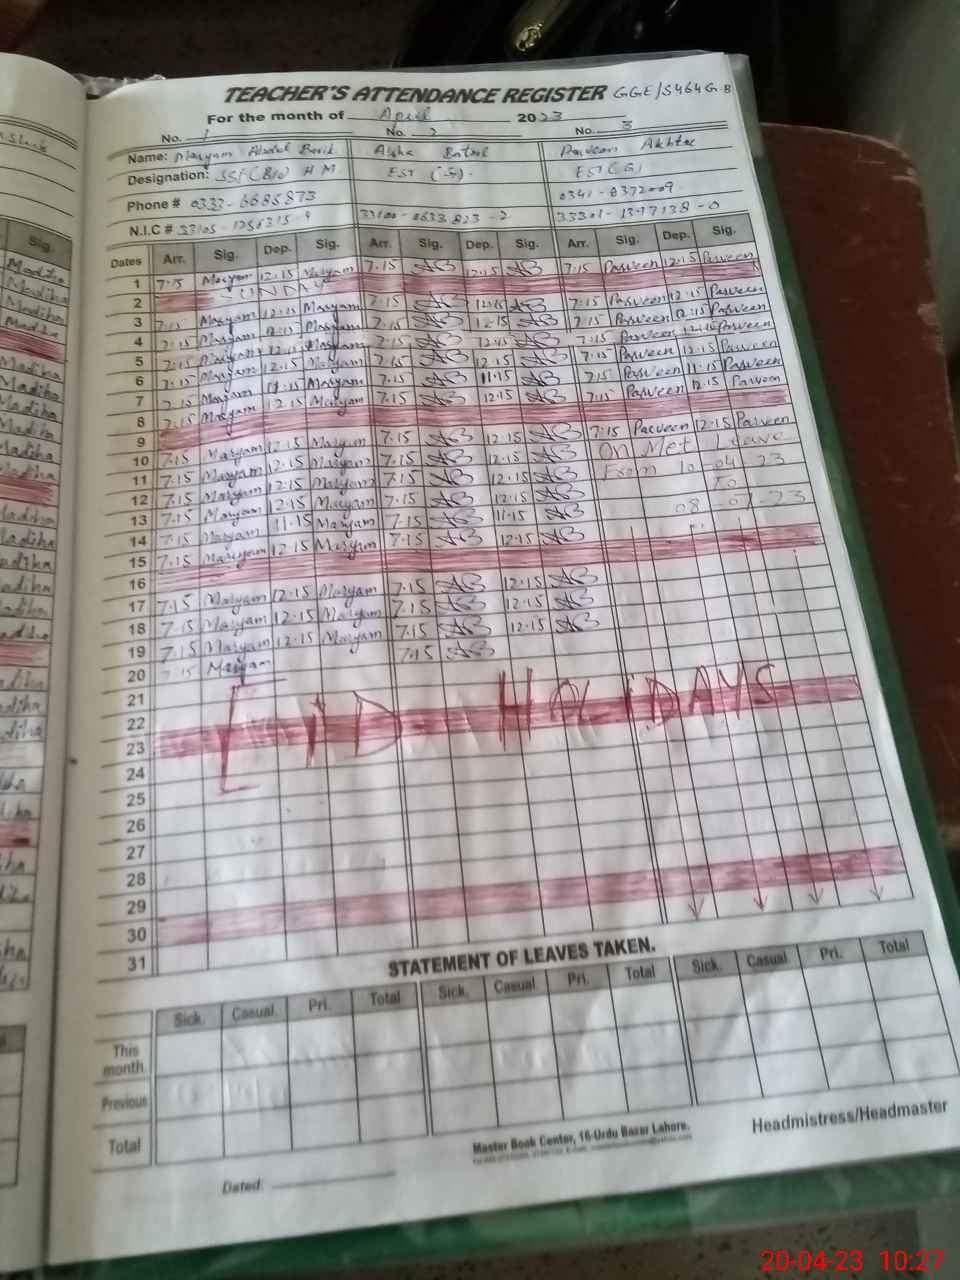 TEACHER'S ATTENDANCE REGISTER GGE/S464G.B
For the month of April 2023
No. 1 No. 2 No. 3
Name: Maryam Abdul Aisha Batool Parveen Akhtar
Designation: SST (Bio) H M EST (G). EST (G)
Phone # 0333-6685873 0341-8372009
N.I.C #
Dates Arr. Sig. Dep. Sig. Arr. Sig. Dep. Sig. Arr. Sig. Dep. Sig.
1 7:15 Maryam 12:15 Maryam 7:15 AB 12:15 AB 7:15 Parveen 12:15 Parveen
2 SUNDAY
3 7:15 Maryam 12:15 Maryam 7:15 AB 12:15 AB 7:15 Parveen 12:15 Parveen
4 7:15 Maryam 12:15 Maryam 7:15 AB 12:15 AB 7:15 Parveen 12:15 Parveen
5 7:15 Maryam 12:15 Maryam 7:15 AB 12:45 AB 7:15 Parveen 12:15 Parveen
6 7:15 Maryam 12:15 Maryam 7:15 AB 12:15 AB 7:15 Parveen 12:15 Parveen
7 7:15 Maryam 11:15 Maryam 7:15 AB 11:15 AB 7:15 Parveen 11:15 Parveen
8 7:15 Maryam 12:15 Maryam 7:15 AB 12:15 AB 7:15 Parveen 12:15 Parveen
9
10 7:15 Maryam 12:15 Maryam 7:15 AB 12:15 AB 7:15 Parveen 12:15 Parveen
11 7:15 Maryam 12:15 Maryam 7:15 AB 12:15 AB On Met Leave
12 7:15 Maryam 12:15 Maryam 7:15 AB 12:15 AB From 10-04 23
13 7:15 Maryam 12:15 Maryam 7:15 AB 12:15 AB To
14 7:15 Maryam 11:15 Maryam 7:15 AB 11:15 AB 08-07-23
15 7:15 Maryam 12:15 Maryam 7:15 AB 12:15 AB
16
17 7:15 Maryam 12:15 Maryam 7:15 AB 12:15 AB
18 7:15 Maryam 12:15 Maryam 7:15 AB 12:15 AB
19 7:15 Maryam 12:15 Maryam 7:15 AB 12:15 AB
20 7:15 Maryam 7:15 AB
21
22 EID HOLIDAYS
23
24
25
26
27
28
29
30
31
STATEMENT OF LEAVES TAKEN.
Sick. Casual Pri. Total Sick. Casual Pri. Total Sick. Casual. Pri. Total
This month.
Previous
Total
Master Book Center, 16-Urdu Bazar Lahore.
Headmistress/Headmaster
Dated:
20-04-23 10:27